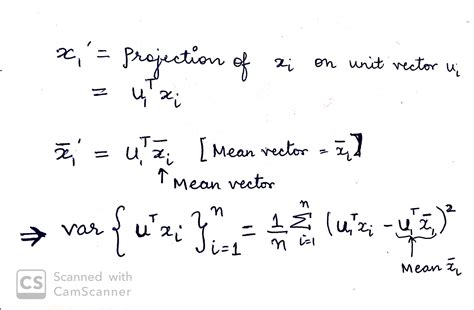 x₁' = Projection of xᵢ on unit vector uᵢ
= u₁ᵀxᵢ
x̄₁' = u₁ᵀx̄ᵢ [Mean vector = x̄ᵢ]
↑ Mean vector
⇒ var { uᵀxᵢ }ⁿᵢ₌₁ = 1/n Σⁿᵢ₌₁ (u₁ᵀxᵢ - u₁ᵀx̄₁)²
↑
Mean x̄ᵢ
CS Scanned with
CamScanner